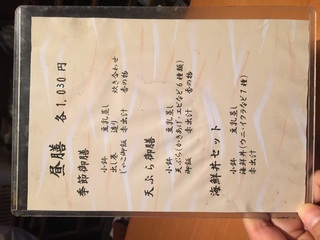 昼膳 各1,030円
季節御膳
小鉢 豆乳蒸し
出し巻 造り 炊き合わせ
じゃこ御飯 赤出汁 香の物
天ぷら御膳
小鉢 豆乳蒸し
天ぷら(かきあげ・エビなど6種類)
御飯 赤出汁 香の物
海鮮丼セット
小鉢 豆乳蒸し
海鮮丼(ウニ・イクラなど7種)
赤出汁